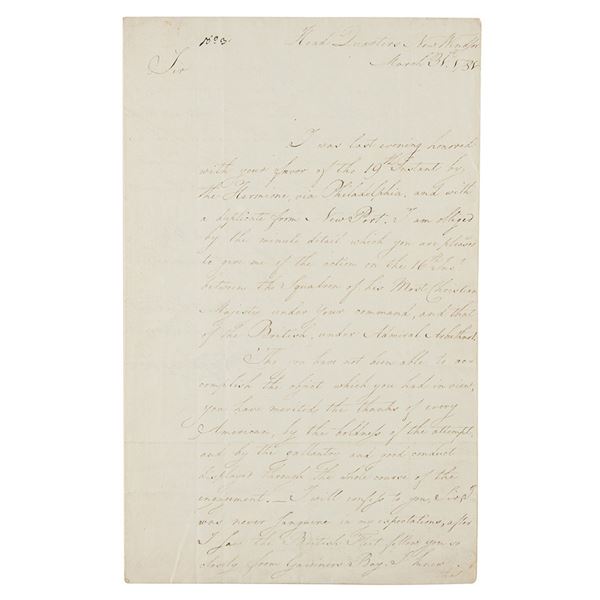 Head Quarters New Windsor
March 31st
Sir
I was last evening honored
with your favor of the 19th Instant by
the Hermione, via Philadelphia, and with
a duplicate from New Port. I am
by the minute detail which you are pleased
to give me of the action on the 16th Inst
between the Squadron of his Most Christian
Majesty under your command, and that
of the British, under Admiral Arbuthnot.
Tho you have not been able to ac-
complish the object which you had in view,
you have merited the thanks of every
American, by the boldness of the attempt,
and by the gallantry and good conduct
displayed through the whole course of the
engagement. — I will confess to you, Sir, I
was never sanguine in my expectations, after
I saw the British Fleet follow you so
closely from Gardners Bay. I knew
that